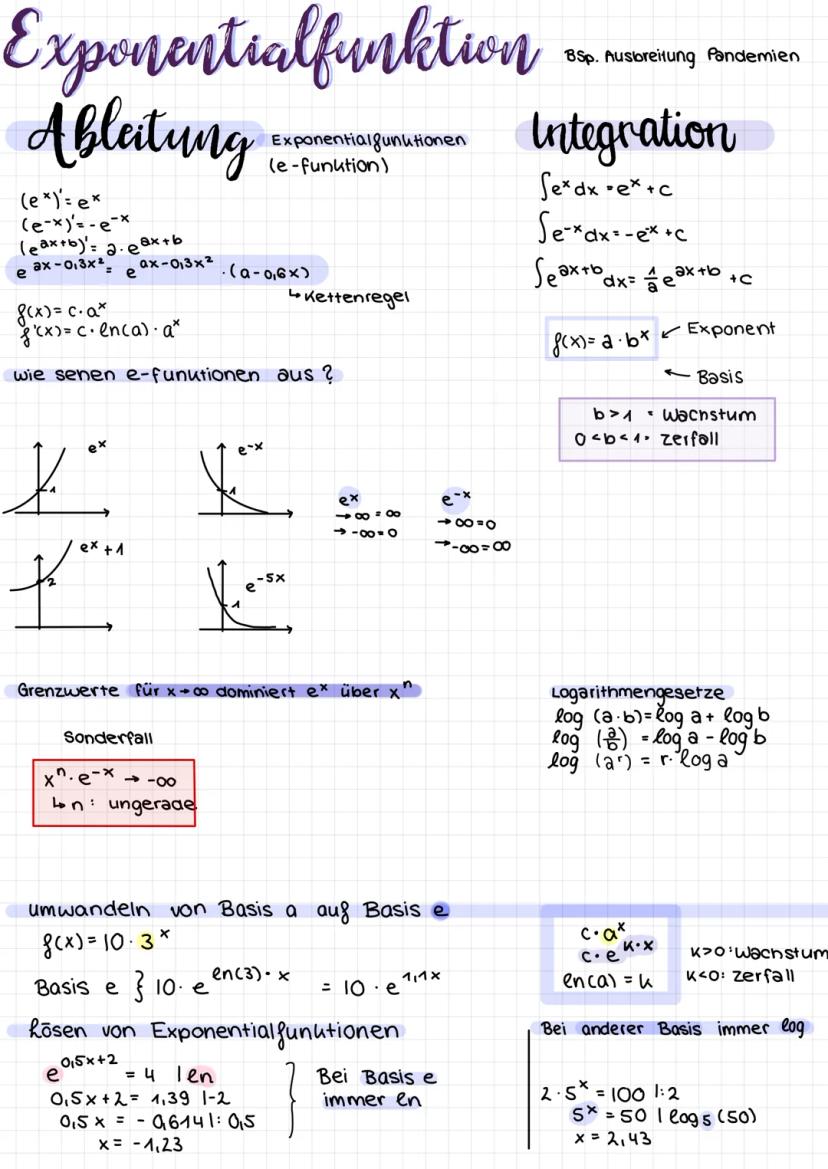 Exponentialfunktion
BSp. Ausbreitung Pandemien
Ableitung
Exponentialfunktionen
(e-funktion)
(eˣ)'= eˣ
(e⁻ˣ)'= -e⁻ˣ
(e^ax+b)'= a·e^ax+b
e^ax-0,3x² = e^ax-0,3x² ·(a-0,6x)
↳Kettenregel
f(x)= c·aˣ
f'(x)= c·ln(a)·aˣ
Integration
∫eˣdx = eˣ+c
∫e⁻ˣdx = -e⁻ˣ+c
∫e^ax+b dx= 1/a e^ax+b +c
f(x)= a·bˣ ← Exponent
← Basis
b>1 = Wachstum
0<b<1 = zerfall
wie sehen e-funktionen aus?
eˣ
1
e⁻ˣ
1
eˣ+1
2
e⁻⁵ˣ
1
eˣ
→∞=∞
→-∞=0
e⁻ˣ
→∞=0
→-∞=∞
Grenzwerte für x→∞ dominiert eˣ über xⁿ
Sonderfall
xⁿ·e⁻ˣ → -∞
↳n: ungerade
Logarithmengesetze
log (a·b)=log a+ log b
log (a/b) =log a-log b
log (aʳ) = r·log a
umwandeln von Basis a auf Basis e
f(x)=10·3ˣ
Basis e } 10·e^ln(3)·x = 10·e^1,1x
c·aˣ
c·e^k·x
ln(a)=k
k>0:Wachstum
k<0: zerfall
Lösen von Exponentialfunktionen
e^0,5x+2 = 4 |ln
0,5x+2= 1,39 |-2
0,5x = -0,614|:0,5
x= -1,23
Bei Basis e
immer ln
Bei anderer Basis immer log
2·5ˣ = 100 |:2
5ˣ = 50 |log₅(50)
x = 2,43